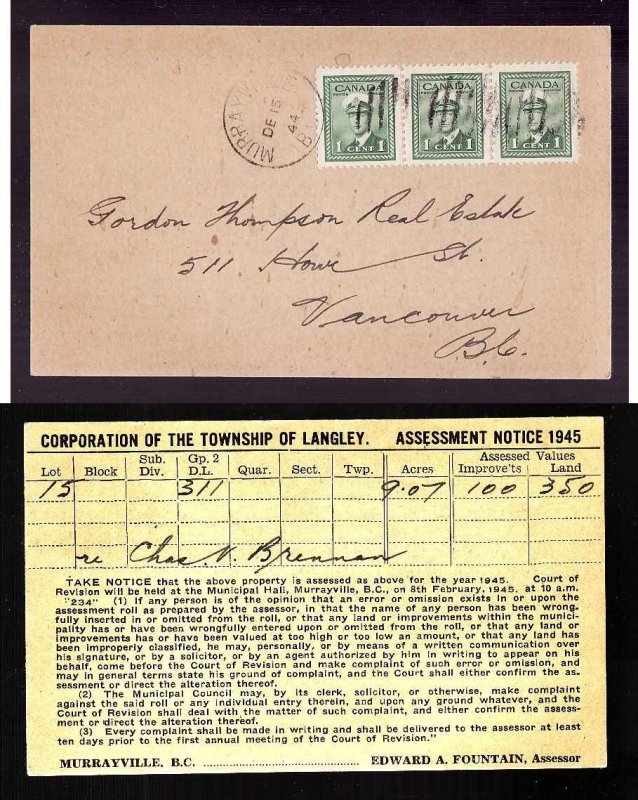 MURRAYV
DE 15
44
B
CANADA CANADA CANADA
1 CENT 1 1 CENT 1 1 CENT 1
Gordon Thompson Real Estate
511 Howe St.
Vancouver
B.C.
CORPORATION OF THE TOWNSHIP OF LANGLEY. ASSESSMENT NOTICE 1945
Sub. Gp. 2 Assessed Values
Lot Block Div. D.L. Quar. Sect. Twp. Acres Improve'ts Land
15 311 9.07 100 350
re Chas. V. Brennan
TAKE NOTICE that the above property is assessed as above for the year 1945. Court of
Revision will be held at the Municipal Hall, Murrayville, B.C., on 8th February, 1945, at 10 a.m.
"234" (1) If any person is of the opinion that an error or omission exists in or upon the
assessment roll as prepared by the assessor, in that the name of any person has been wrong-
fully inserted in or omitted from the roll, or that any land or improvements within the munici-
pality has or have been wrongfully entered upon or omitted from the roll, or that any land or
improvements has or have been valued at too high or too low an amount, or that any land has
been improperly classified, he may, personally, or by means of a written communication over
his signature, or by a solicitor, or by an agent authorized by him in writing to appear on his
behalf, come before the Court of Revision and make complaint of such error or omission, and
may in general terms state his ground of complaint, and the Court shall either confirm the as-
sessment or direct the alteration thereof.
(2) The Municipal Council may, by its clerk, solicitor, or otherwise, make complaint
against the said roll or any individual entry therein, and upon any ground whatever, and the
Court of Revision shall deal with the matter of such complaint, and either confirm the assess-
ment or direct the alteration thereof.
(3) Every complaint shall be made in writing and shall be delivered to the assessor at least
ten days prior to the first annual meeting of the Court of Revision."
MURRAYVILLE, B.C. EDWARD A. FOUNTAIN, Assessor